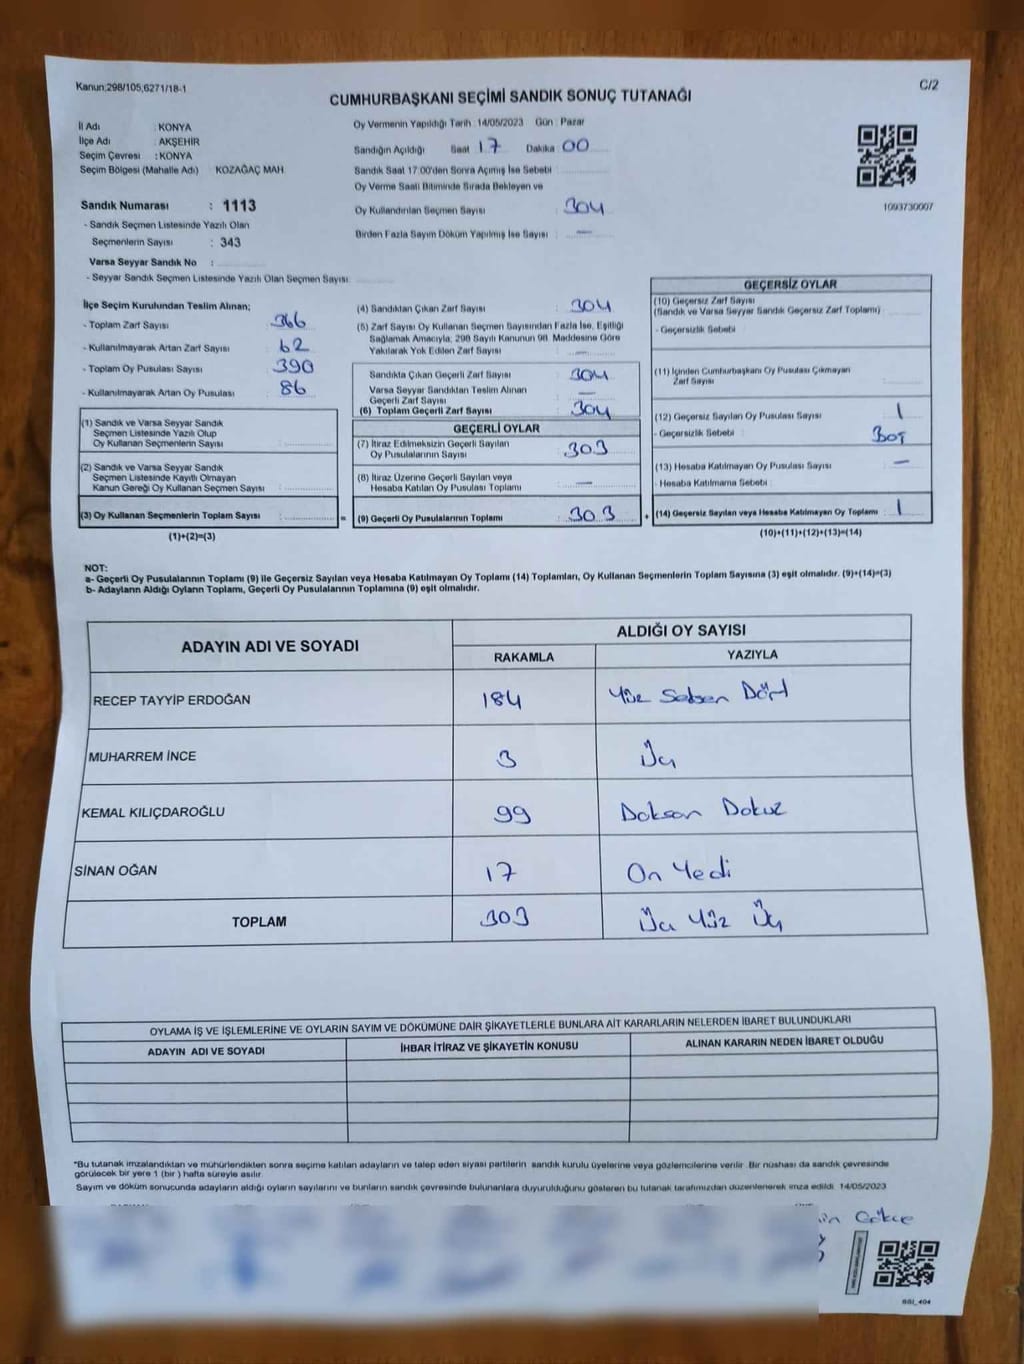 Kanun:298/105,6271/18-1
C/2
CUMHURBAŞKANI SEÇİMİ SANDIK SONUÇ TUTANAĞI
İl Adı : KONYA
İlçe Adı : AKŞEHİR
Seçim Çevresi : KONYA
Seçim Bölgesi (Mahalle Adı) KOZAĞAÇ MAH.
Sandık Numarası : 1113
- Sandık Seçmen Listesinde Yazılı Olan
Seçmenlerin Sayısı : 343
Varsa Seyyar Sandık No :
- Seyyar Sandık Seçmen Listesinde Yazılı Olan Seçmen Sayısı:
Oy Vermenin Yapıldığı Tarih :14/05/2023 Gün : Pazar
Sandığın Açıldığı Saat 17 Dakika 00
Sandık Saat 17:00'den Sonra Açılmış İse Sebebi
Oy Verme Saati Bitiminde Sırada Bekleyen ve
Oy Kullandırılan Seçmen Sayısı : 304
Birden Fazla Sayım Döküm Yapılmış İse Sayısı : —
1093730007
İlçe Seçim Kurulundan Teslim Alınan;
- Toplam Zarf Sayısı : 366
- Kullanılmayarak Artan Zarf Sayısı : 62
- Toplam Oy Pusulası Sayısı : 390
- Kullanılmayarak Artan Oy Pusulası : 86
(1) Sandık ve Varsa Seyyar Sandık
Seçmen Listesinde Yazılı Olup
Oy Kullanan Seçmenlerin Sayısı :
(2) Sandık ve Varsa Seyyar Sandık
Seçmen Listesinde Kayıtlı Olmayan
Kanun Gereği Oy Kullanan Seçmen Sayısı :
(3) Oy Kullanan Seçmenlerin Toplam Sayısı :
(1)+(2)=(3)
(4) Sandıktan Çıkan Zarf Sayısı : 304
(5) Zarf Sayısı Oy Kullanan Seçmen Sayısından Fazla İse, Eşitliği
Sağlamak Amacıyla; 298 Sayılı Kanunun 98. Maddesine Göre
Yakılarak Yok Edilen Zarf Sayısı : —
Sandıkta Çıkan Geçerli Zarf Sayısı : 304
Varsa Seyyar Sandıktan Teslim Alınan
Geçerli Zarf Sayısı : —
(6) Toplam Geçerli Zarf Sayısı : 304
GEÇERLİ OYLAR
(7) İtiraz Edilmeksizin Geçerli Sayılan
Oy Pusulalarının Sayısı : 303
(8) İtiraz Üzerine Geçerli Sayılan veya
Hesaba Katılan Oy Pusulası Toplamı : —
=
(9) Geçerli Oy Pusulalarının Toplamı : 303
+
GEÇERSİZ OYLAR
(10) Geçersiz Zarf Sayısı
(Sandık ve Varsa Seyyar Sandık Geçersiz Zarf Toplamı) :
- Geçersizlik Sebebi :
(11) İçinden Cumhurbaşkanı Oy Pusulası Çıkmayan
Zarf Sayısı :
(12) Geçersiz Sayılan Oy Pusulası Sayısı : 1
- Geçersizlik Sebebi : Boş
(13) Hesaba Katılmayan Oy Pusulası Sayısı : —
- Hesaba Katılmama Sebebi :
(14) Geçersiz Sayılan veya Hesaba Katılmayan Oy Toplamı : 1
(10)+(11)+(12)+(13)=(14)
NOT:
a- Geçerli Oy Pusulalarının Toplamı (9) ile Geçersiz Sayılan veya Hesaba Katılmayan Oy Toplamı (14) Toplamları, Oy Kullanan Seçmenlerin Toplam Sayısına (3) eşit olmalıdır. (9)+(14)=(3)
b- Adayların Aldığı Oyların Toplamı, Geçerli Oy Pusulalarının Toplamına (9) eşit olmalıdır.
ADAYIN ADI VE SOYADI
ALDIĞI OY SAYISI
RAKAMLA YAZIYLA
RECEP TAYYİP ERDOĞAN 184 Yüz Seksen Dört
MUHARREM İNCE 3 Üç
KEMAL KILIÇDAROĞLU 99 Doksan Dokuz
SİNAN OĞAN 17 On Yedi
TOPLAM 303 Üç Yüz Üç
OYLAMA İŞ VE İŞLEMLERİNE VE OYLARIN SAYIM VE DÖKÜMÜNE DAİR ŞİKAYETLERLE BUNLARA AİT KARARLARIN NELERDEN İBARET BULUNDUKLARI
ADAYIN ADI VE SOYADI İHBAR İTİRAZ VE ŞİKAYETİN KONUSU ALINAN KARARIN NEDEN İBARET OLDUĞU
*Bu tutanak imzalandıktan ve mühürlendikten sonra seçime katılan adayların ve talep eden siyasi partilerin sandık kurulu üyelerine veya gözlemcilerine verilir. Bir nüshası da sandık çevresinde
görülecek bir yere 1 (bir) hafta süreyle asılır.
Sayım ve döküm sonucunda adayların aldığı oyların sayılarını ve bunların sandık çevresinde bulunanlara duyurulduğunu gösteren bu tutanak tarafımızdan düzenlenerek imza edildi. 14/05/2023
Gökce